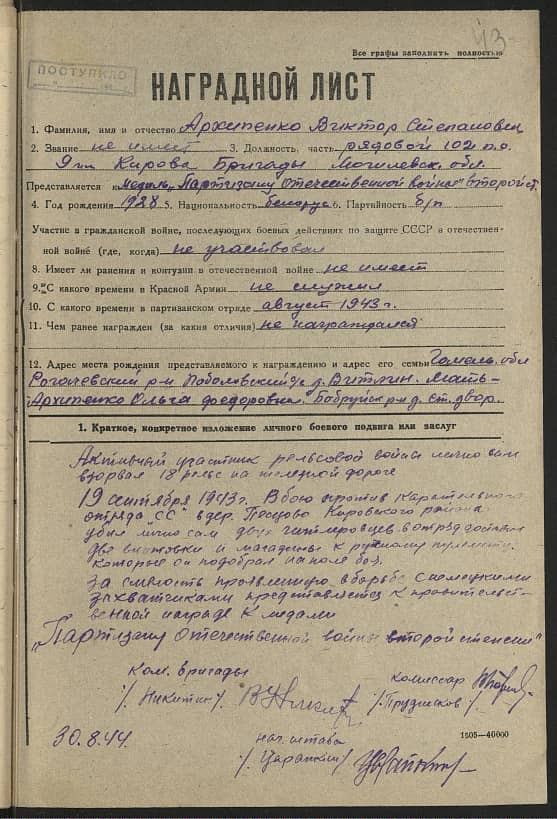 43
Все графы заполнить полностью
ПОСТУПИЛО
НАГРАДНОЙ ЛИСТ
1. Фамилия, имя и отчество Архипенко Виктор Степанович
2. Звание не имеет 3. Должность, часть рядовой 102 п.о.
9 им Кирова Бригады Могилевск. обл.
Представляется к медаль „Партизану Отечественной войны" второй ст.
4. Год рождения 1928 5. Национальность белорус 6. Партийность б/п
Участие в гражданской войне, последующих боевых действиях по защите СССР в отечествен-
ной войне (где, когда) не участвовал
8. Имеет ли ранения и контузии в отечественной войне не имеет
9. С какого времени в Красной Армии не служил
10. С какого времени в партизанском отряде август 1943 г.
11. Чем ранее награжден (за какия отличия) не награждался
12. Адрес места рождения представляемого к награждению и адрес его семьи Гомель. обл
Рогачевский р-н д. Мать-
Архипенко Ольга Федоровна. Бобруйск р-н д. Ст. двор.
1. Краткое, конкретное изложение личного боевого подвига или заслуг
Активный участник рельсовой войны лично сам
взорвал 18 рельс на железной дороге
19 сентября 1943 г. В бою против карательного
отряда „СС" в дер. Песцово Кировского района
убил лично сам двух гитлеровцев в отряд доставил
две винтовки и магазины к ручному пулемету.
которые он подобрал на поле боя.
За смелость проявленную в борьбе с немецкими
захватчиками представляется к правительст-
венной награде к медали
„Партизану Отечественной войны второй степени"
Ком. бригады
/. Никитин/
комиссар
/. Прудников/
30.8.44.
нач. штаба
1505—40000